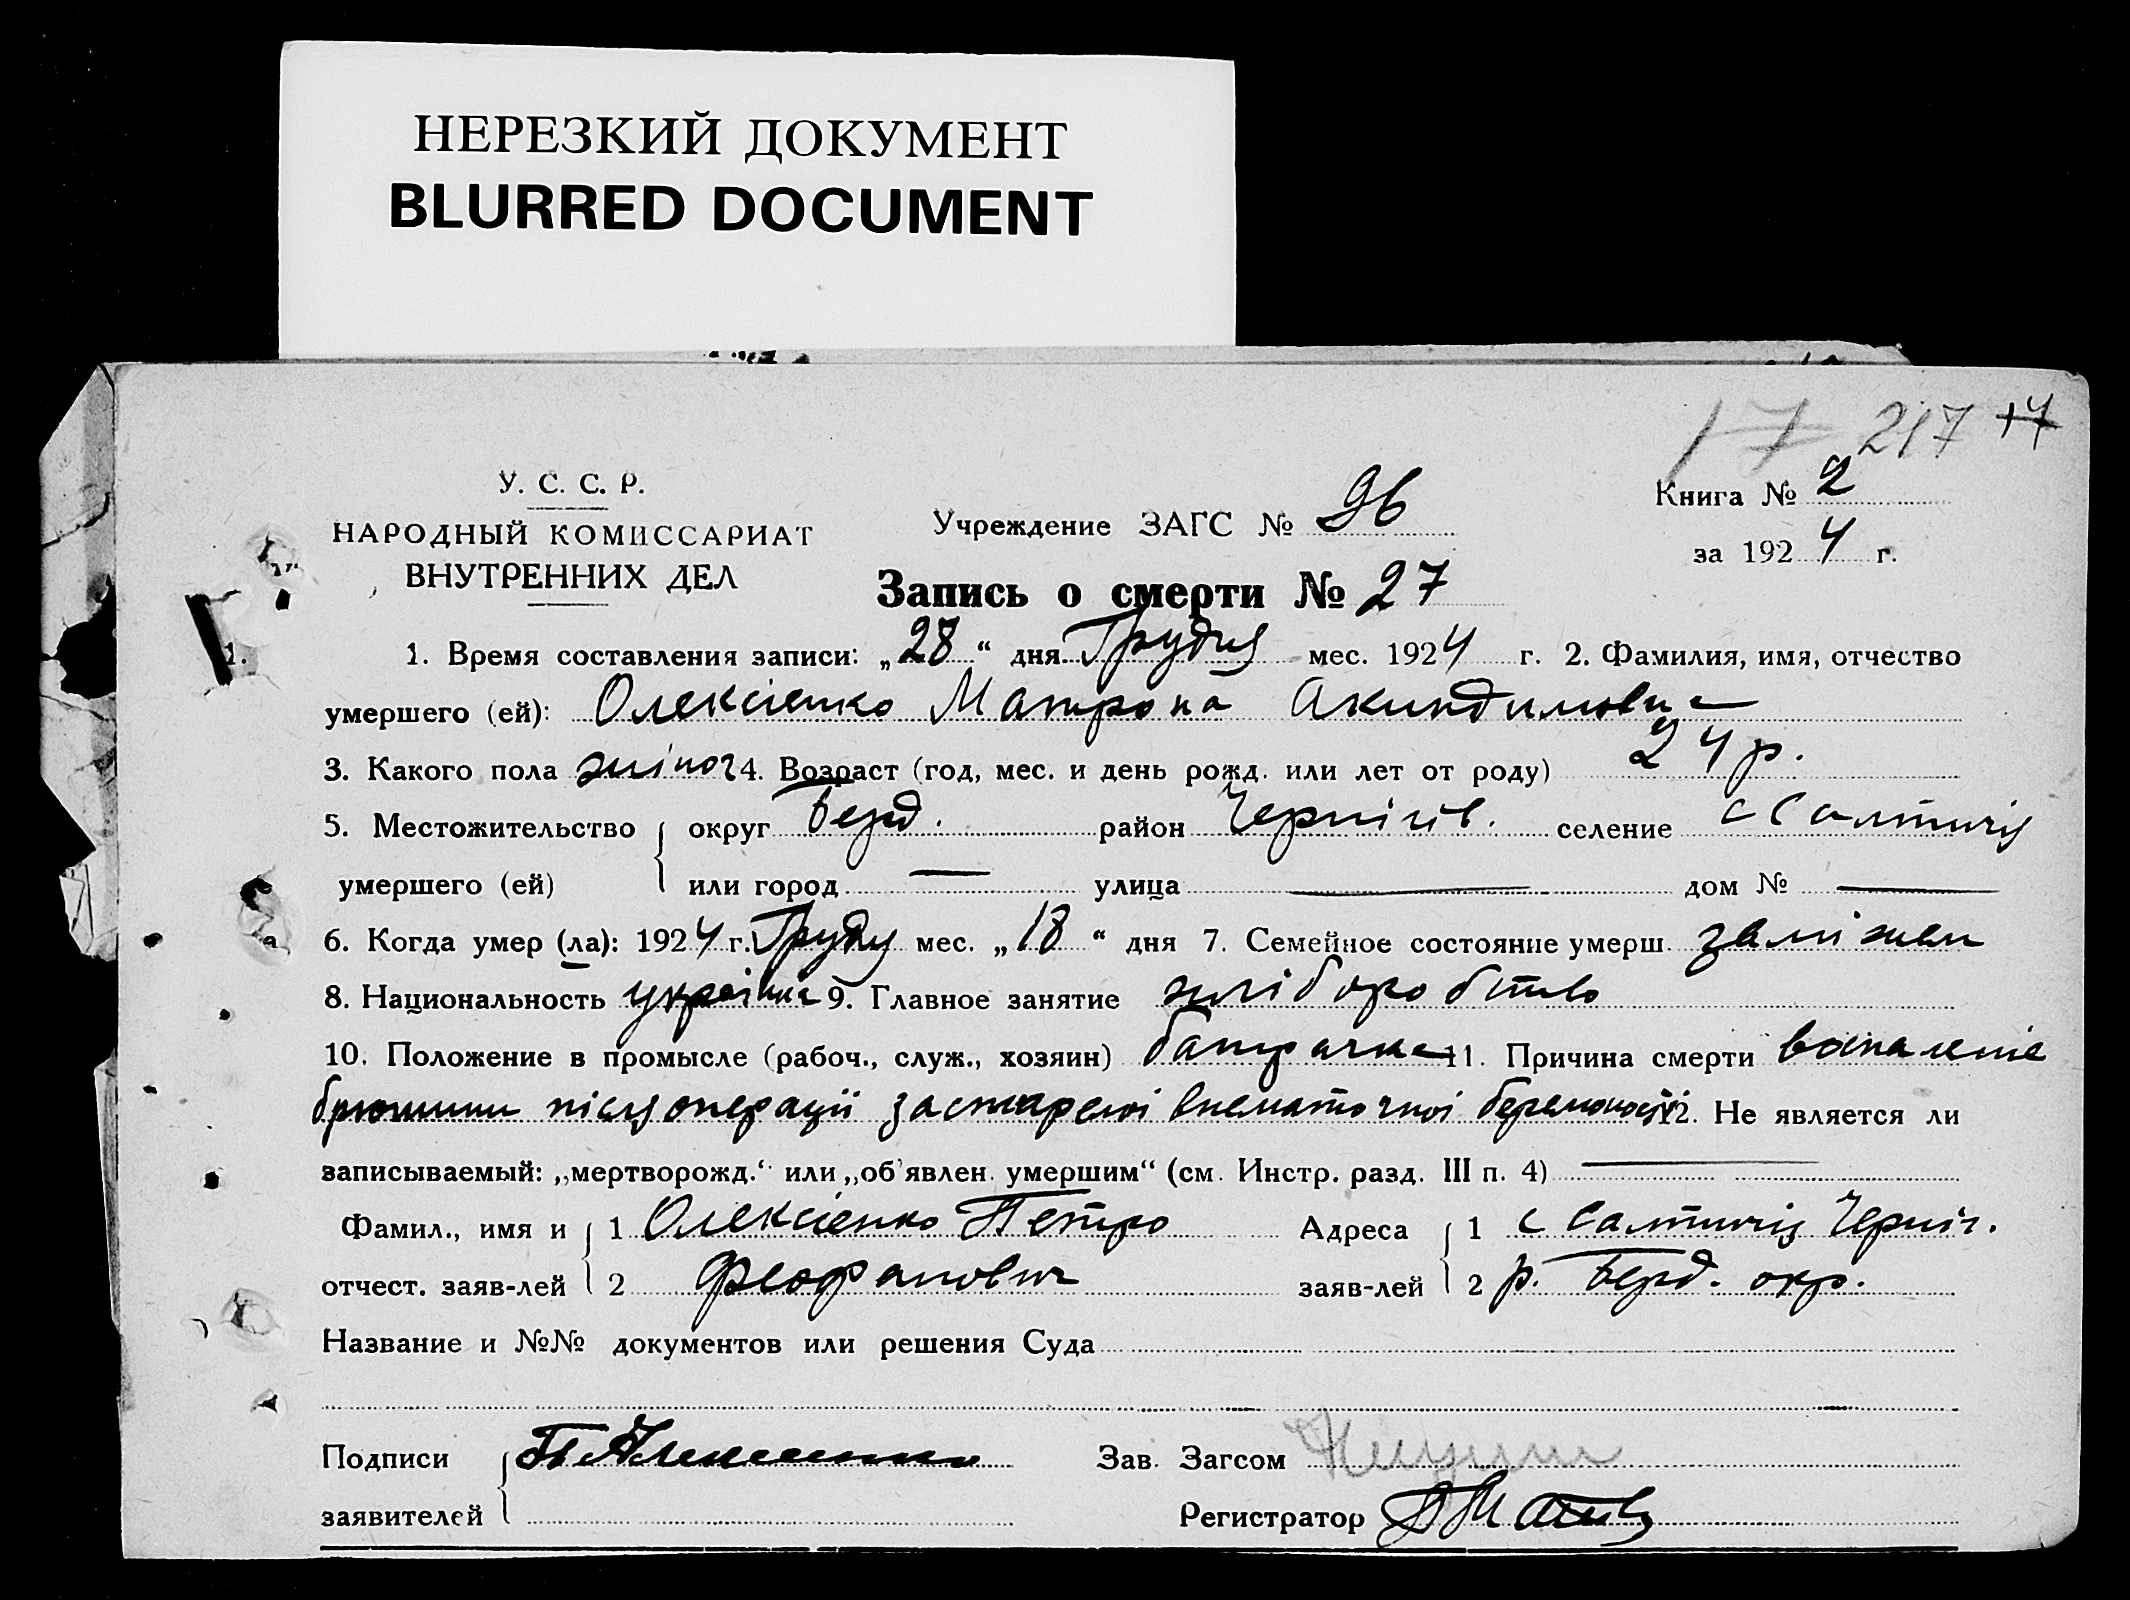 НЕРЕЗКИЙ ДОКУМЕНТ
BLURRED DOCUMENT
17 217 17
У. С. С. Р.
НАРОДНЫЙ КОМИССАРИАТ
ВНУТРЕННИХ ДЕЛ
Учреждение ЗАГС № 96
Книга № 2
за 1924 г.
Запись о смерти № 27
1. Время составления записи: „28“ дня Грудня мес. 1924 г. 2. Фамилия, имя, отчество
умершего (ей): Олексієнко Матрона
3. Какого пола жіноч 4. Возраст (год, мес. и день рожд. или лет от роду) 24 р.
5. Местожительство округ Берд. район Чернігів. селение с Салтичія
умершего (ей) или город — улица — дом № —
6. Когда умер (ла): 1924 г. Грудня мес. „18“ дня 7. Семейное состояние умерш. заміжем
8. Национальность українка 9. Главное занятие хліборобство
10. Положение в промысле (рабоч., служ., хозяин) батрачка 11. Причина смерти
брюшини після операції застарелої внематочної беремоності 12. Не является ли
записываемый: „мертворожд.“ или „об'явлен. умершим“ (см. Инстр. разд. III п. 4) —
Фамил., имя и 1 Олексієнко Петро Адреса 1 с Салтичія Черніг.
отчест. заяв-лей 2 Феофанович заяв-лей 2 р. Берд. окр.
Название и №№ документов или решения Суда
Подписи Зав. Загсом
заявителей Регистратор